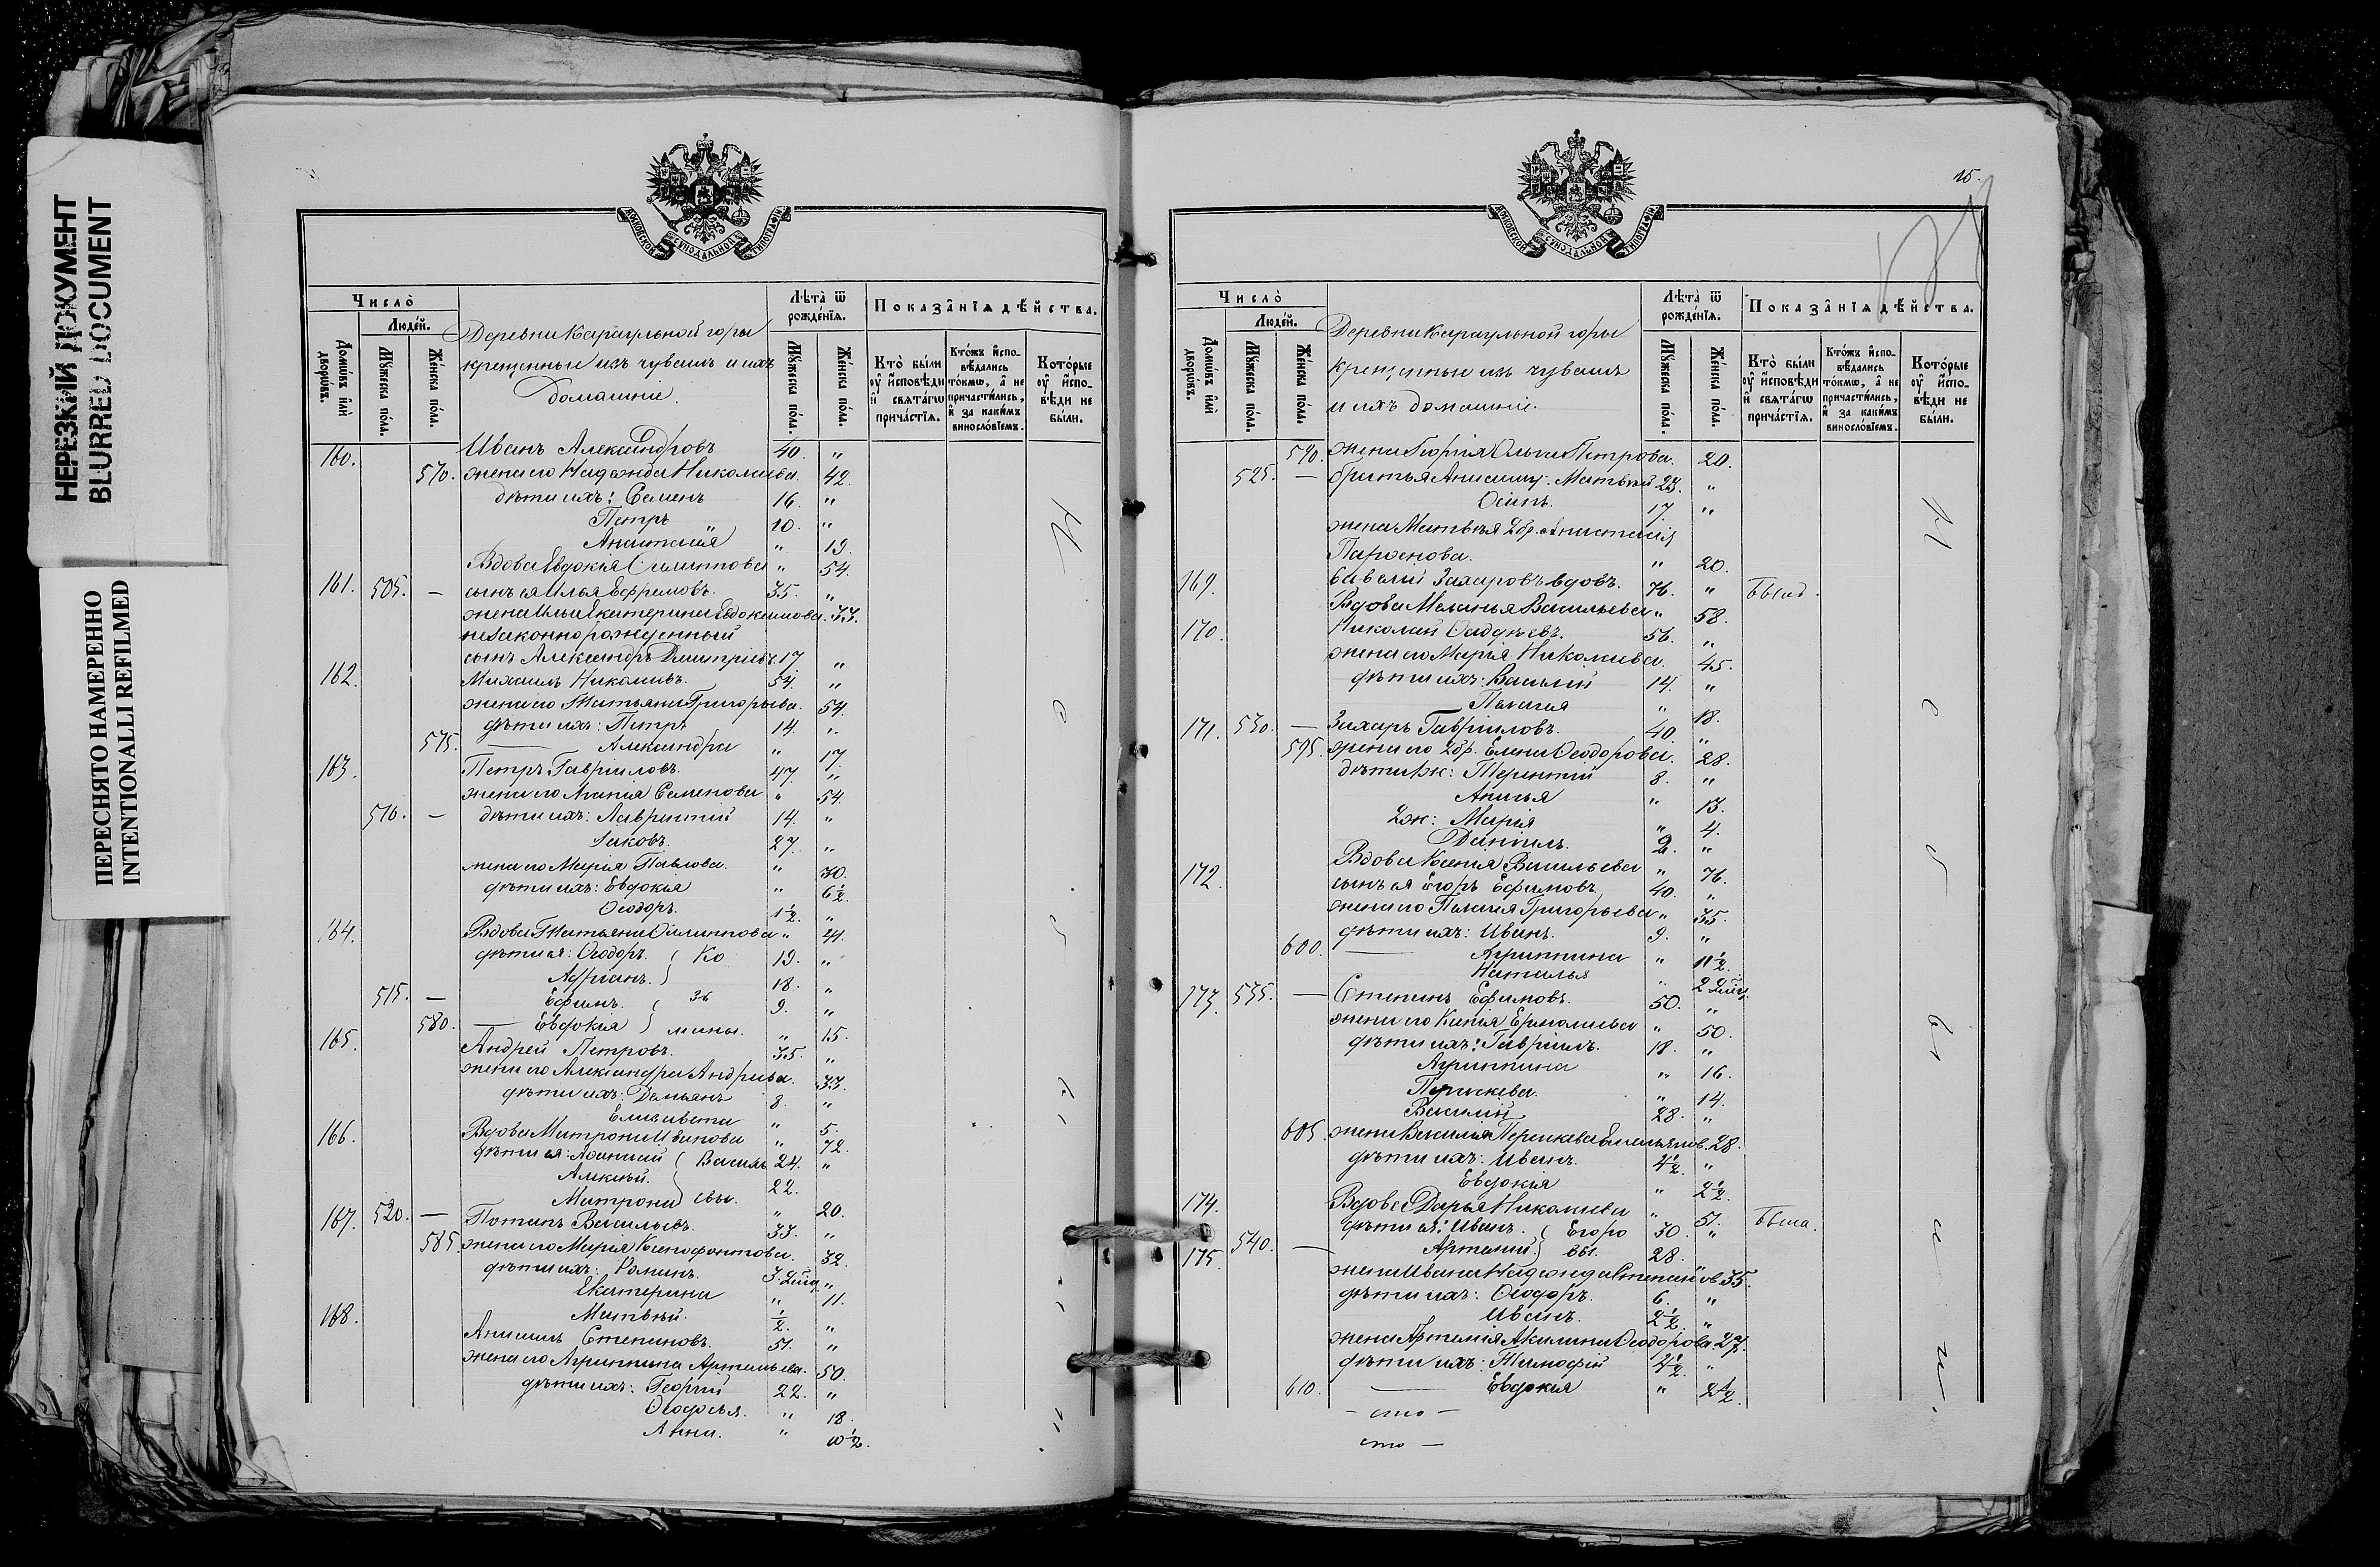 НЕРЕЗКИЙ ДОКУМЕНТ
BLURRED DOCUMENT
ПЕРЕСНЯТО НАМЕРЕННО
INTENTIONALLI REFILMED
МОСКОВСКОЙ СѴНОДАЛЬНОЙ ТИПОГРАФІИ
Число̀
Люде́й.
Домѡ́въ и҆лѝ дворѡ́въ.
Мꙋ́жеска по́ла.
Же́нска по́ла.
Деревни Караульной горы
крещенные изъ чувашъ и ихъ
домашніе.
Лѣта̀ ѿ рожде́нїѧ.
Мꙋ́жеска по́ла.
Же́нска по́ла.
Показа̑нїѧ дѣ́йства.
Кто̀ бы́ли ᲂу҆ и҆сповѣди и҆ свѧта́гѡ прича́стїѧ.
Кто́жъ и҆сповѣ́дались то́кмѡ, а҆ не причасти́лись, и҆ за каки́мъ виносло́вїемъ.
Кото́рые ᲂу҆ и҆сповѣди не бы́ли.
160. Иванъ Александровъ 40. "
570. жена его Надежда Николаева. 42.
дѣти ихъ: Семенъ 16. "
Петръ 10. "
Анастасія " 19.
Вдова Евдокія Филиппова " 54.
161. 505. — сынъ ея Илья Ефремовъ. 35. "
жена Ильи Екатерина Евдокимова. 33.
незаконнорожденный
сынъ Александръ Дмитріевъ. 17 "
162. Михаилъ Николаевъ. 54. "
жена его Татьяна Григорьева. 54.
дѣти ихъ: Петръ 14. "
575. — Александра " 17.
163. Петръ Гавріиловъ. 47. "
жена его Агапія Семенова " 54.
510. — дѣти ихъ: Лаврентій 14. "
Іаковъ. 27. "
жена его Марія Павлова. " 30.
дѣти ихъ: Евдокія " 6½.
Ѳеодоръ. 1½. "
164. Вдова Татьяна Филиппова "
дѣти ея: Ѳеодоръ. Ко 19. "
Адріанъ. 18. "
515. — Ефимъ. зь 9. "
580. — Евдокія мины. " 15.
165. Андрей Петровъ. 35. "
жена его Александра Андреева. 33.
дѣти ихъ: Демьянъ 8. "
Елизавета " 5.
166. Вдова Матрона Иванова " 72.
дѣти ея: Василь 24. "
Алексѣй. 22.
Матрона евы. " 20.
167. 520. — Потапъ Васильевъ. 33. "
585. жена его Марія Ксенофонтова. 32.
дѣти ихъ: Романъ. "
Екатерина " 11.
168. Матвѣй. ½. "
Анисимъ Степановъ. 51. "
жена его Агриппина Артемьева. 50.
дѣти ихъ: Георгій 22. "
Ѳеодосья. " 18.
Анна. " 10½.
15.
МОСКОВСКОЙ СѴНОДАЛЬНОЙ ТИПОГРАФІИ
Число̀
Люде́й.
Домѡ́въ и҆лѝ дворѡ́въ.
Мꙋ́жеска по́ла.
Же́нска по́ла.
Деревни Караульной горы
крещенные изъ чувашъ
и ихъ домашніе.
Лѣта̀ ѿ рожде́нїѧ.
Мꙋ́жеска по́ла.
Же́нска по́ла.
Показа̑нїѧ дѣ́йства.
Кто̀ бы́ли ᲂу҆ и҆сповѣди и҆ свѧта́гѡ прича́стїѧ.
Кто́жъ и҆сповѣ́дались то́кмѡ, а҆ не причасти́лись, и҆ за каки́мъ виносло́вїемъ.
Кото́рые ᲂу҆ и҆сповѣди не бы́ли.
590. жена Георгія Ольга Петрова. 20.
525. — братья Анисиму: Матвѣй 23. "
Осипъ. 17 "
жена Матвѣя 2 бр. Анастасія
Парѳенова. " 20.
169. Савелій Захаровъ вдовъ. 76. "
Вдова Меланья Васильева " 58.
170. Николай Фаддѣевъ. 56. "
жена его Марія Николаева. 45.
дѣти ихъ: Василій 14. "
Пелагія " 18.
171. 530. — Захаръ Гавріиловъ. 40. "
595. жена его 2 бр. Елена Ѳеодорова. 28.
дѣти : Терентій 8. "
Анисья " 13.
2 ж: Марія " 4.
Даніилъ. 2. "
172. Вдова Ксенія Васильева " 76.
сынъ ея Егоръ Ефимовъ. 40. "
жена его Пелагія Григорьева " 35.
дѣти ихъ: Иванъ. 9. "
600. — Агриппина " 11½.
Наталья "
173. 535. — Степанъ Ефимовъ. 50. "
жена его Ксенія Ермолаева " 50.
дѣти ихъ: Гавріилъ. 18. "
Агриппина " 16.
Параскева. " 14.
Василій 28. "
605. жена Василія Параскева Емельянов. 28.
дѣти ихъ: Иванъ. 4½. "
Евдокія " 2½.
174. Вдова Дарья Николаева " 51. Была.
дѣти ея: Иванъ. Егоро 30. "
175. 540. — Артемій вы. 28.
жена Ивана Надежда Степанов 35.
дѣти ихъ: Ѳеодоръ. 6. "
Иванъ. 2½. "
жена Артемія Акилина Ѳеодорова. 27.
дѣти ихъ: Тимофей 4½. "
610. — Евдокія " 2½.